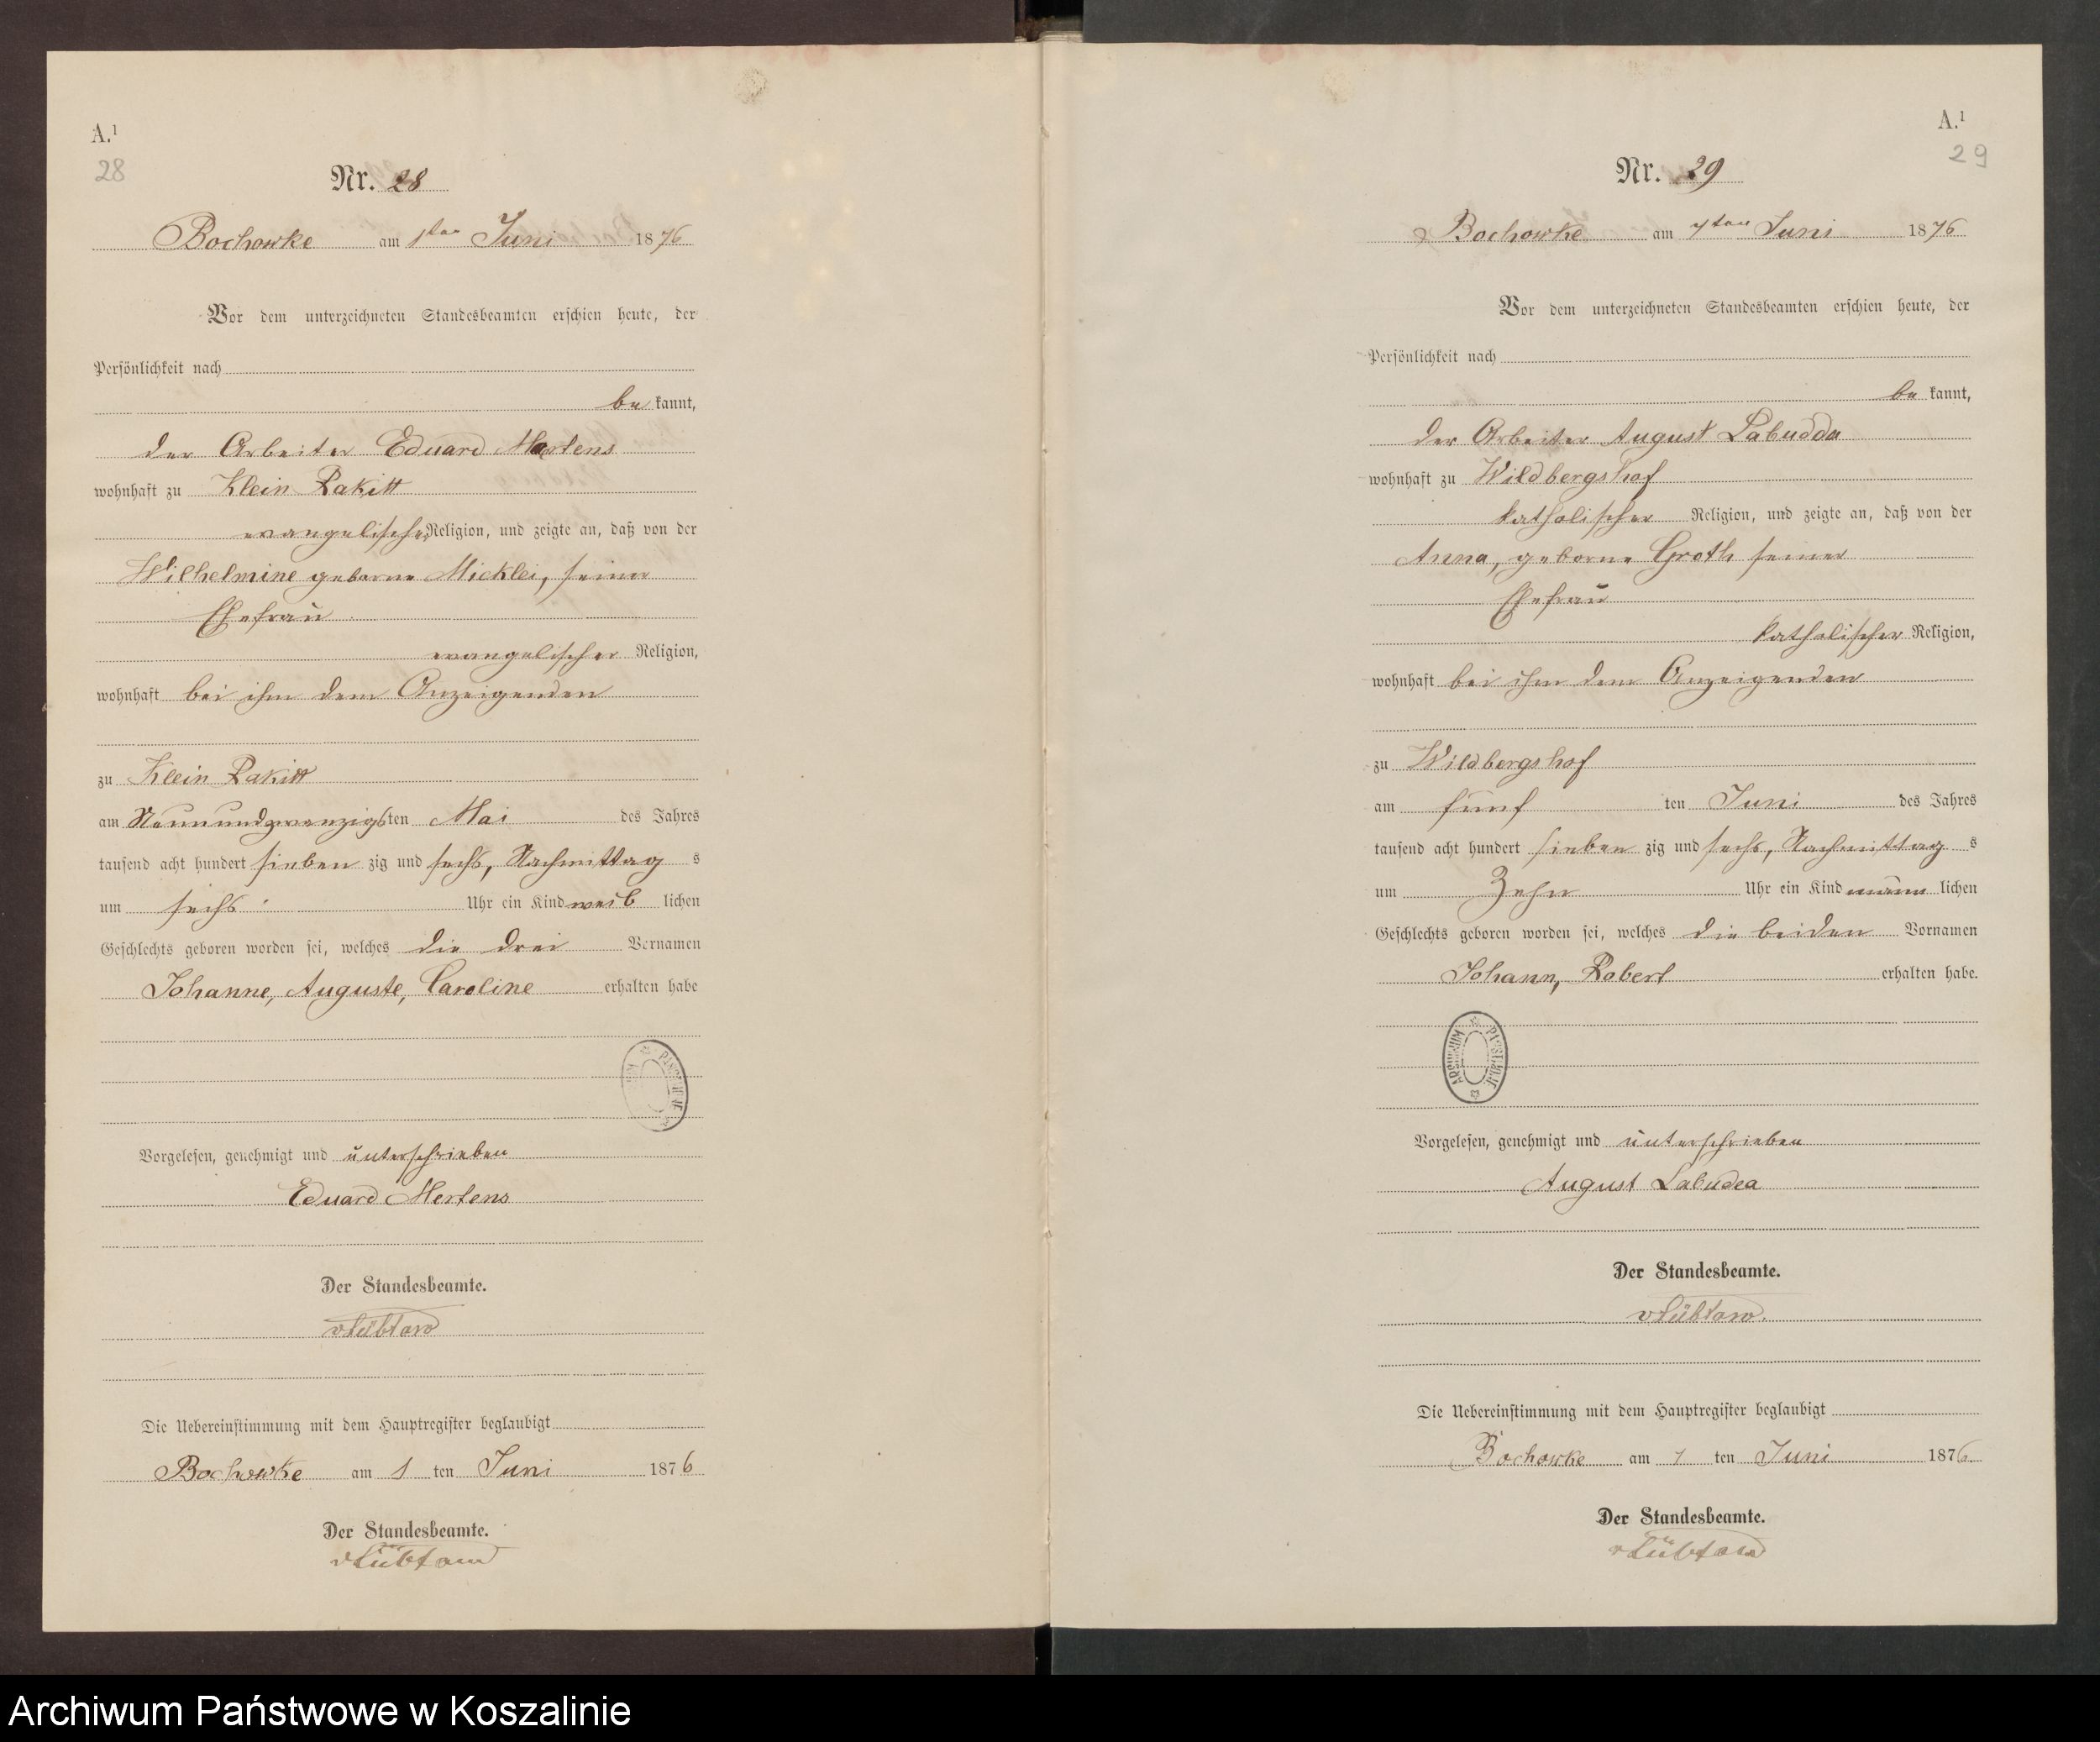 A.¹
28
Nr. 28
Bochowke am 1ten Juni 1876
Vor dem unterzeichneten Standesbeamten erschien heute, der
Persönlichkeit nach
be kannt,
der Arbeiter Eduard Mertens
wohnhaft zu Klein Rakitt
evangelischer Religion, und zeigte an, daß von der
Wilhelmine geborne Micklei, seiner
Ehefrau
evangelischer Religion,
wohnhaft bei ihm dem Anzeigenden
zu Klein Rakitt
am Neunundzwanzigsten Mai des Jahres
tausend acht hundert sieben zig und sechs, Nachmittag s
um sechs Uhr ein Kind weib lichen
Geschlechts geboren worden sei, welches die drei Vornamen
Johanne, Auguste, Caroline erhalten habe
Vorgelesen, genehmigt und unterschrieben
Eduard Mertens
Der Standesbeamte.
vLübtow
Die Uebereinstimmung mit dem Hauptregister beglaubigt
Bochowke am 1 ten Juni 1876
Der Standesbeamte.
vLübtow
A.¹
29
Nr. 29
Bochowke am 7ten Juni 1876
Vor dem unterzeichneten Standesbeamten erschien heute, der
Persönlichkeit nach
be kannt,
der Arbeiter August Labudda
wohnhaft zu Wildbergshof
katholischer Religion, und zeigte an, daß von der
Anna, geborne Groth seiner
Ehefrau
katholischer Religion,
wohnhaft bei ihm dem Anzeigenden
zu Wildbergshof
am fünf ten Juni des Jahres
tausend acht hundert sieben zig und sechs, Nachmittag s
um Zehn Uhr ein Kind männ lichen
Geschlechts geboren worden sei, welches die beiden Vornamen
Johann, Robert erhalten habe.
ARCHIWUM PAŃSTWOWE
Vorgelesen, genehmigt und unterschrieben
August Labudda
Der Standesbeamte.
vLübtow.
Die Uebereinstimmung mit dem Hauptregister beglaubigt
Bochowke am 7 ten Juni 1876
Der Standesbeamte.
vLübtow
Archiwum Państwowe w Koszalinie